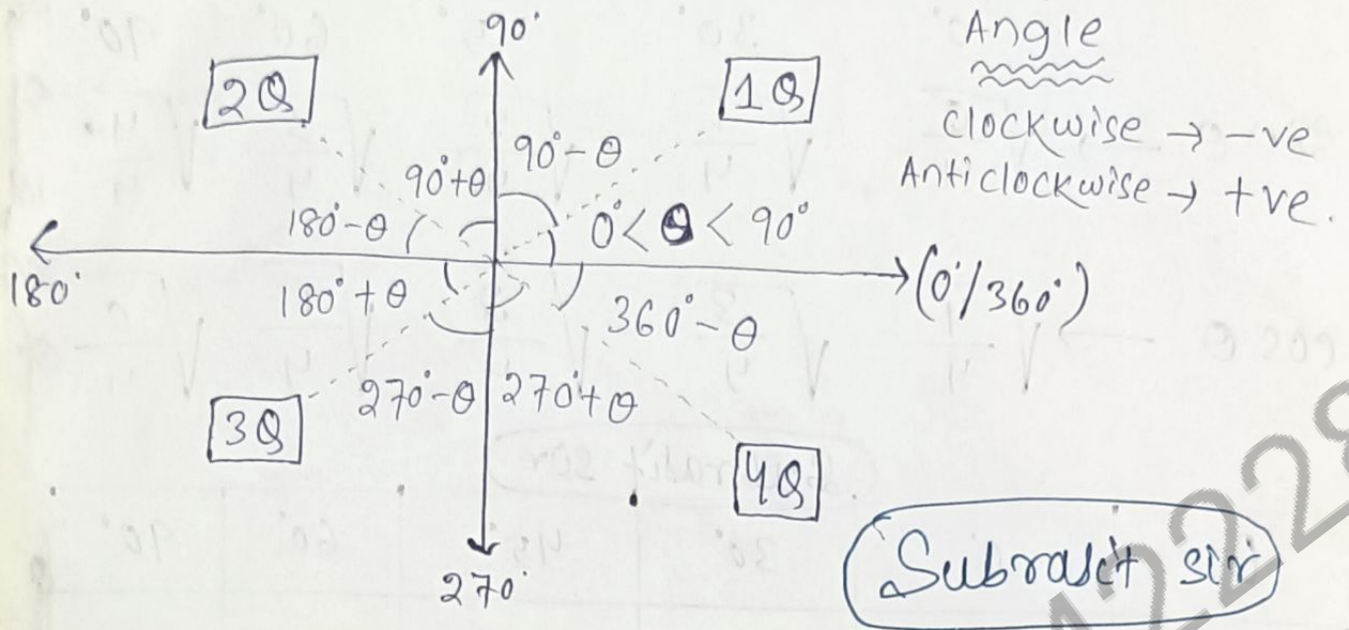 90°
Angle
2Q
1Q
Clockwise → -ve
90°-θ
Anticlockwise → +ve.
90°+θ
180°-θ
0°< θ < 90°
180°
(0°/360°)
180°+θ
360°-θ
270°-θ
270°+θ
3Q
4Q
270°
Subrasit sir